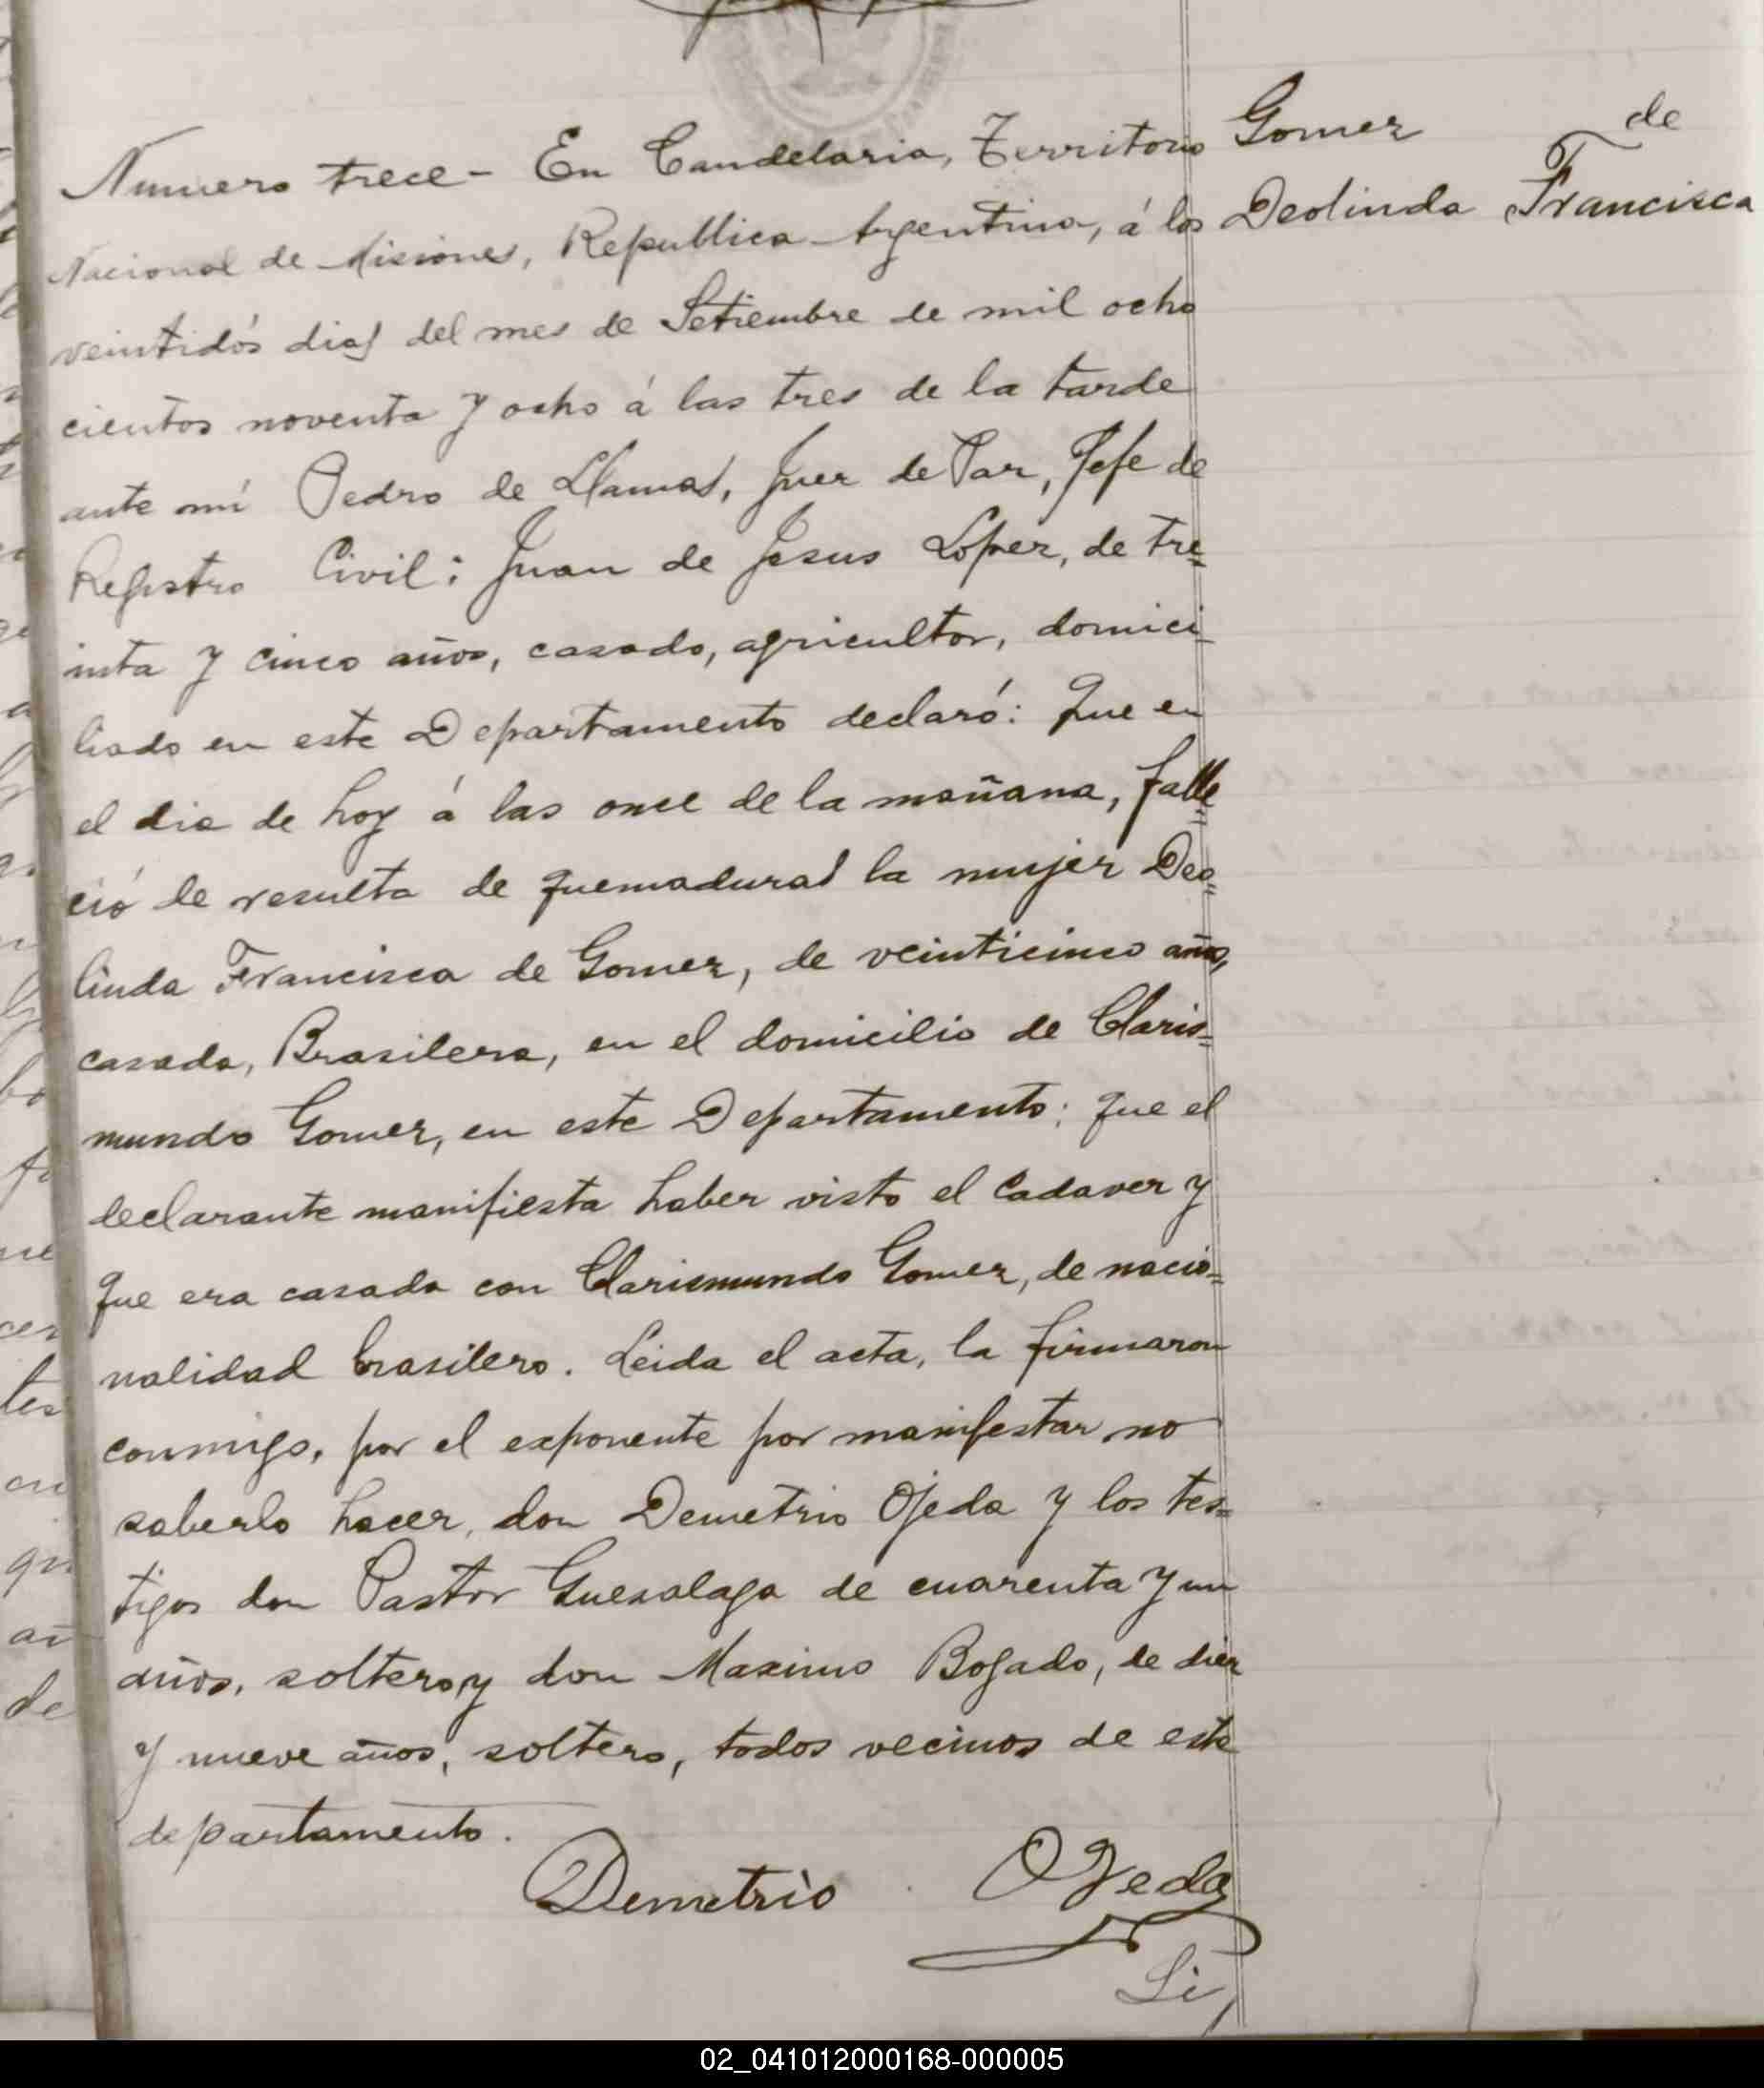 Numero trece - En Candelaria, Territorio
Nacional de Misiones, Republica Argentina, á los
veintidós dias del mes de Setiembre de mil ocho
cientos noventa y ocho á las tres de la tarde
ante mí Pedro de Llamas, Juez de Paz, Jefe de
Registro Civil: Juan de Jesus Lopez, de tre-
inta y cinco años, casado, agricultor, domici-
liado en este Departamento declaró: Que en
el dia de hoy á las once de la mañana, falle=
ció de resulta de quemaduras la mujer Deo=
linda Francisca de Gomez, de veinticinco años,
casada, Brasilera, en el domicilio de Claris=
mundo Gomez, en este Departamento; que el
declarante manifiesta haber visto el cadaver y
que era casada con Clarismundo Gomez, de nacio=
nalidad brasilero. Leida el acta, la firmaron
conmigo, por el exponente por manifestar no
saberlo hacer, don Demetrio Ojeda y los tes=
tigos don Pastor Guesalaga de cuarenta y un
años, soltero y don Maximo Bogado, de diez
y nueve años, soltero, todos vecinos de este
departamento.
Demetrio Ojeda
Gomez de
Deolinda Francisca
02_041012000168-000005